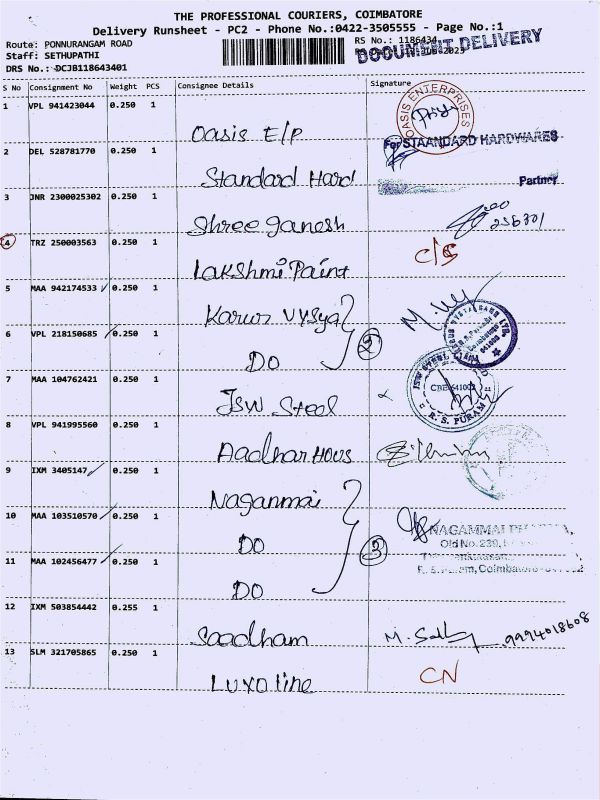 THE PROFESSIONAL COURIERS, COIMBATORE
Delivery Runsheet - PC2 - Phone No.:0422-3505555 - Page No.:1
Route: PONNURANGAM ROAD
RS No.: 1186434
DOCUMENT DELIVERY
Staff: SETHUPATHI
DRS No.: DCJB118643401
S No Consignment No Weight PCS Consignee Details Signature
1 VPL 941423044 0.250 1
Oasis E/P
OASIS ENTERPRISES
2 DEL 528781770 0.250 1
For STAANDARD HARDWARES
Standard Hard
Partner
3 JNR 2300025302 0.250 1
Shree ganesh
256301
4 TRZ 250003563 0.250 1
Lakshmi Paint
C/S
5 MAA 942174533 0.250 1
Karur Vysya
6 VPL 218150685 0.250 1
DO
2
7 MAA 104762421 0.250 1
JSW Steel
JSW STEEL
CBE-641002
R. S. PURAM
8 VPL 941995560 0.250 1
Aadhar Hous
9 IXM 3405147 0.250 1
Naganmai
10 MAA 103510570 0.250 1
DO
3
NAGAMMAI
Old No. 239,
11 MAA 102456477 0.250 1
DO
Coimbatore
12 IXM 503854442 0.255 1
Saadham
9994018608
13 SLM 321705865 0.250 1
Luxoline
CN